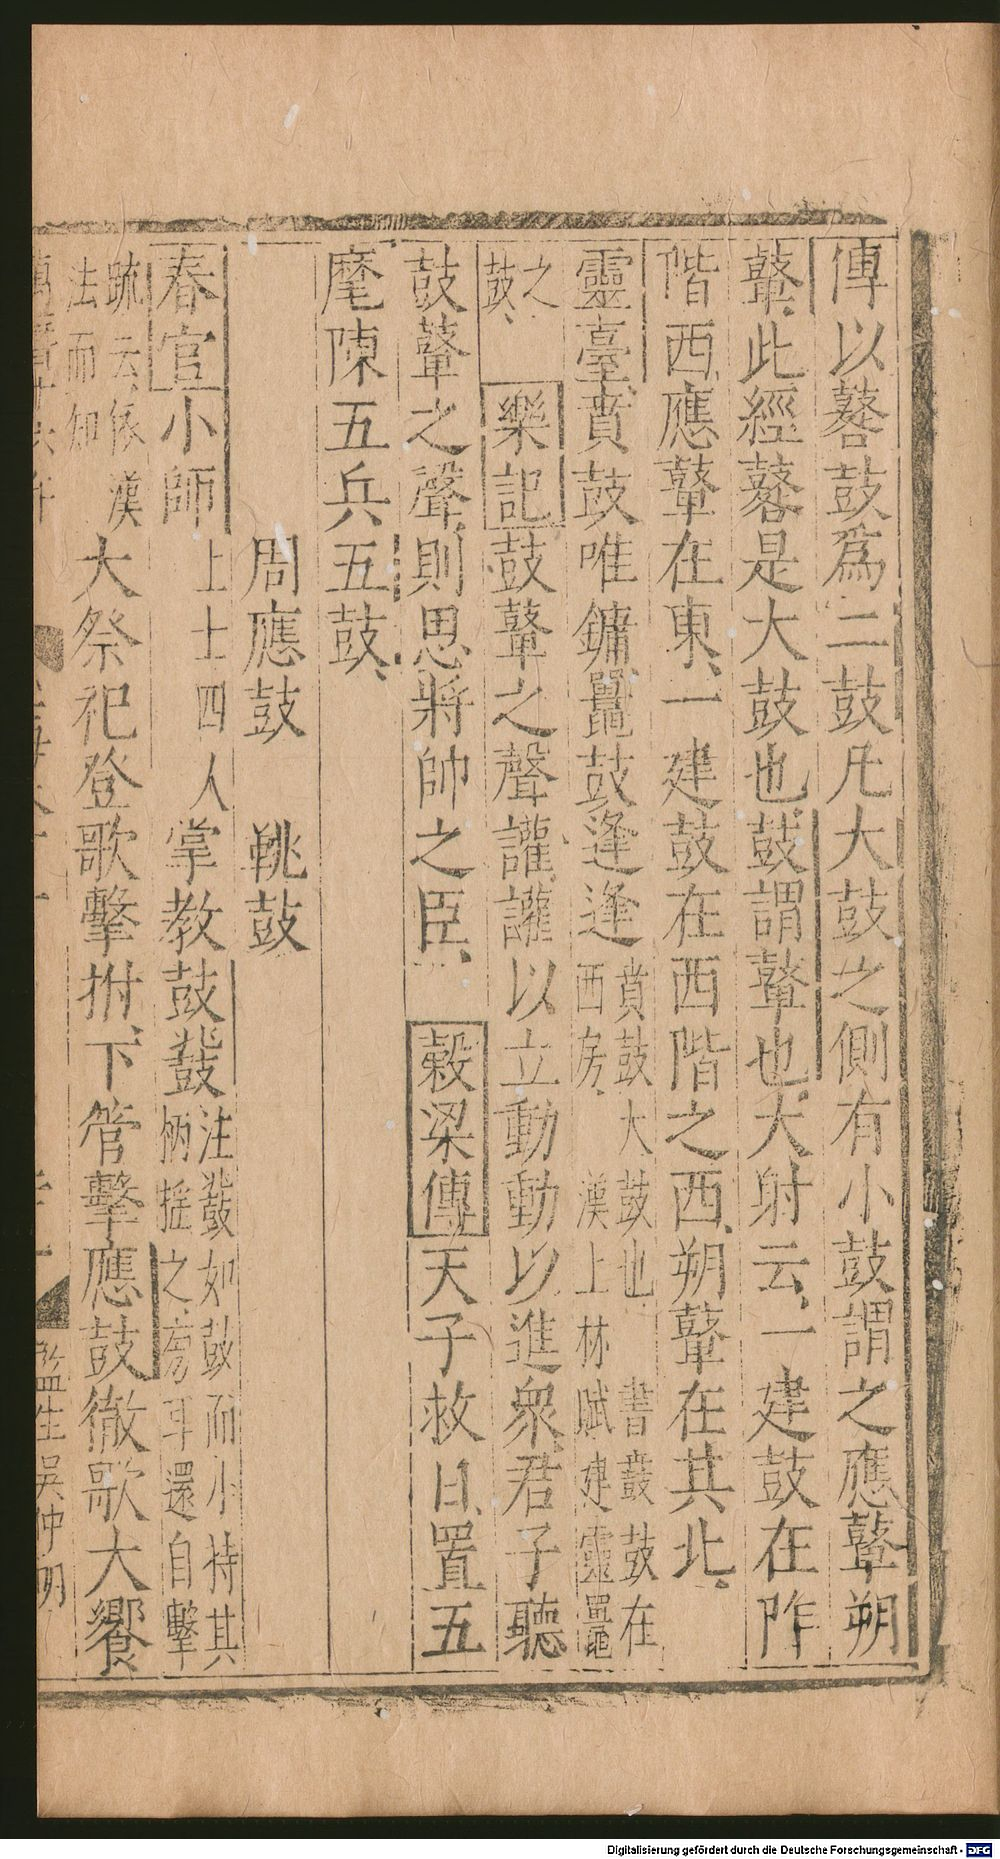 傳以鼛鼓爲二鼓凡大鼓之側有小鼓謂之應鼙朔
鼙此經鼛是大鼓也鼓謂鼙也大射云一建鼓在阼
階西應鼙在東一建鼓在西階之西朔鼙在其北
靈臺賁鼓唯鏞鼉鼓逢逢
賁鼓大鼓也 書鼖鼓在
西房 漢上林賦建靈鼉
之
鼓
樂記鼓鼙之聲讙讙以立動動以進衆君子聽
鼓鼙之聲則思將帥之臣 穀梁傳天子救日置五
麾陳五兵五鼓
周應鼓 鞉鼓
春官小師
上士四人
掌教鼓鼗
注鼗如鼓而小持其
柄搖之旁耳還自擊
疏云依漢
法而知
大祭祀登歌擊拊下管擊應鼓徹歌大饗
監生吳仲明
Digitalisierung gefördert durch die Deutsche Forschungsgemeinschaft - DFG